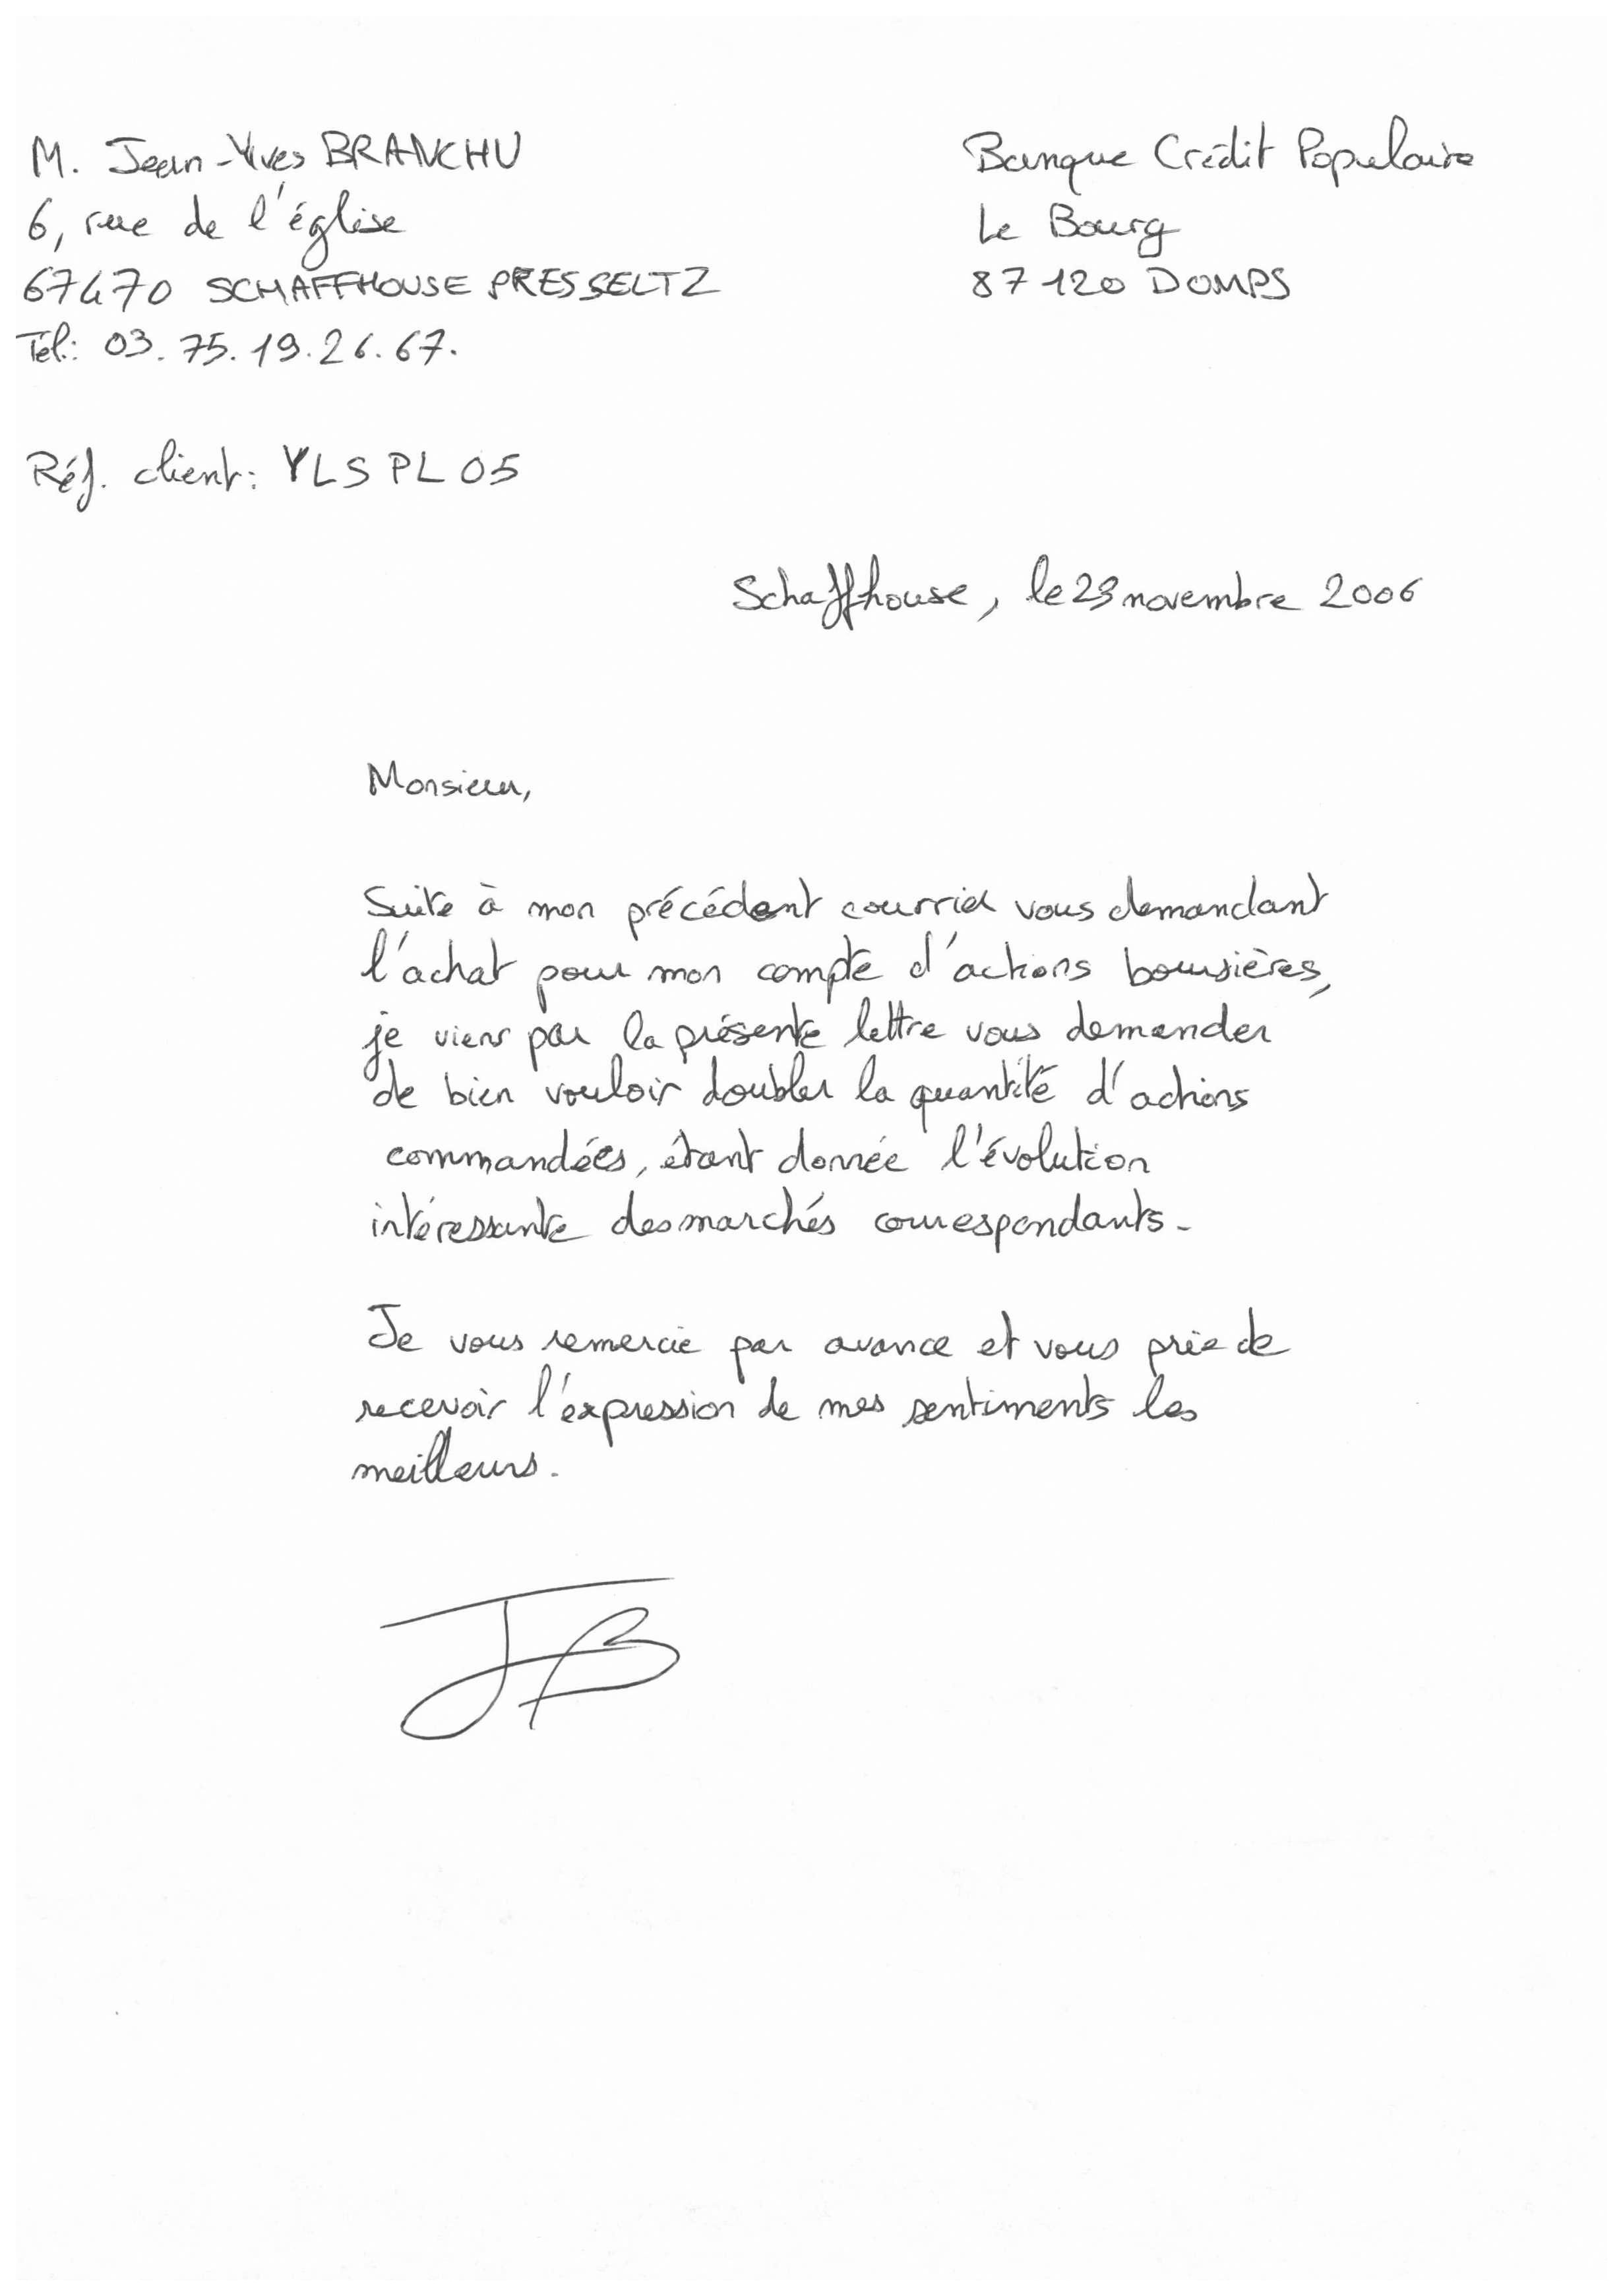 M. Jean-Yves BRANCHU
6, rue de l'église
67470 SCHAFFHOUSE PRES SELTZ
Tél.: 03.75.19.26.67.
Réf. client: YLSPL05
Banque Crédit Populaire
Le Bourg
87120 DOMPS
Schaffhouse, le 23 novembre 2006
Monsieur,
Suite à mon précédent courriel vous demandant
l'achat pour mon compte d'actions boursières,
je viens par la présente lettre vous demander
de bien vouloir doubler la quantité d'actions
commandées, étant donnée l'évolution
intéressante des marchés correspondants.
Je vous remercie par avance et vous prie de
recevoir l'expression de mes sentiments les
meilleurs.
JB